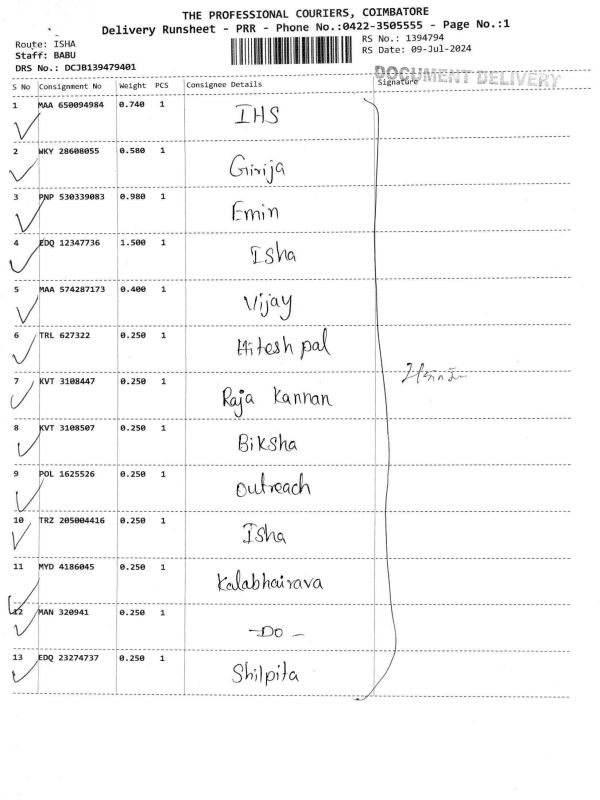 THE PROFESSIONAL COURIERS, COIMBATORE
Delivery Runsheet - PRR - Phone No.:0422-3505555 - Page No.:1
Route: ISHA
RS No.: 1394794
Staff: BABU
RS Date: 09-Jul-2024
DRS No.: DCJB139479401
DOCUMENT DELIVERY
S No Consignment No Weight PCS Consignee Details Signature
1 MAA 650094984 0.740 1 IHS
2 WKY 28608055 0.580 1 Girija
3 PNP 530339083 0.980 1 Emin
4 EDQ 12347736 1.500 1 Isha
5 MAA 574287173 0.400 1 Vijay
6 TRL 627322 0.250 1 Hitesh pal
7 KVT 3108447 0.250 1 Raja Kannan
8 KVT 3108507 0.250 1 Biksha
9 POL 1625526 0.250 1 Outreach
10 TRZ 205004416 0.250 1 Isha
11 MYD 4186045 0.250 1 Kalabhairava
12 MAN 320941 0.250 1 -Do-
13 EDQ 23274737 0.250 1 Shilpita